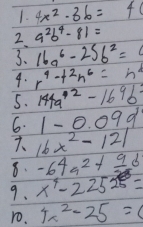 1. 4x² - 36 = 4(
2. a²b⁴ - 81 =
3. 16a⁶ - 25b² = (
4. r⁴ + 2n⁶ = n
5. 144a² - 169b²
6. 1 - 0.09a
7. 16x² - 121
8. -64a² + 9b
9. x⁴ - 225
10. 4x² - 25 = (